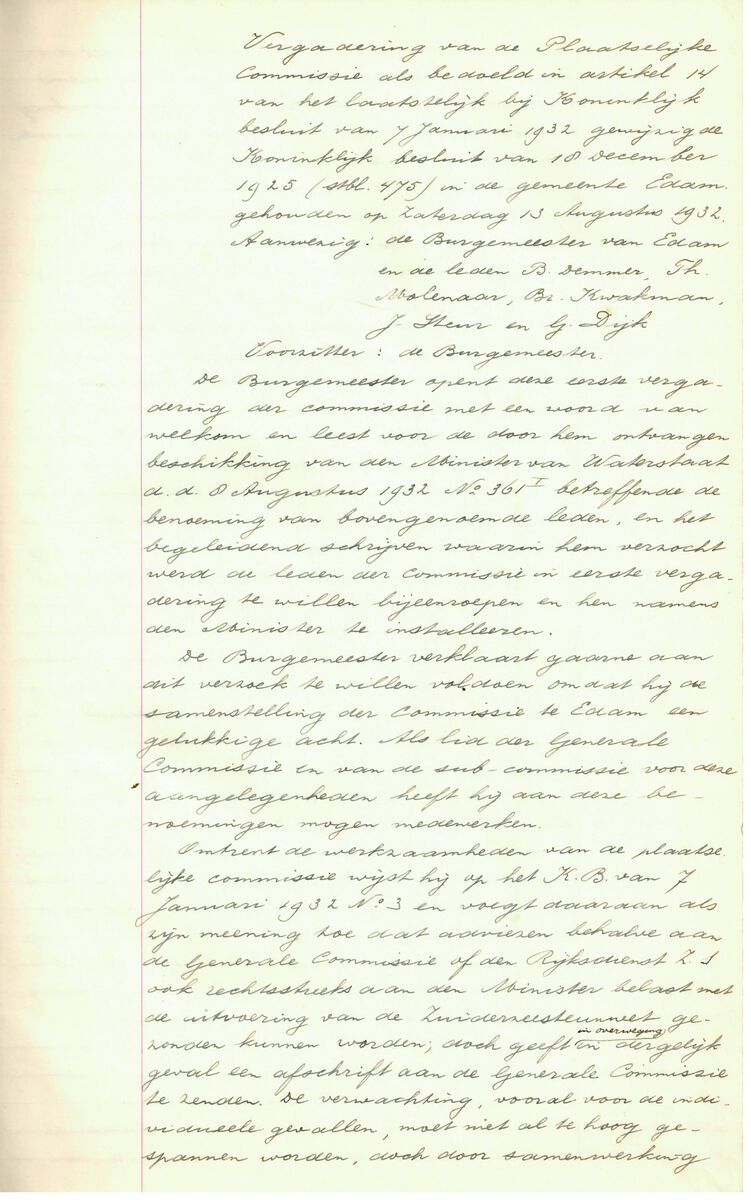 Vergadering van de Plaatselijke
Commissie als bedoeld in artikel 14
van het laatstelijk bij Koninklijk
besluit van 7 Januari 1932 gewijzigde
Koninklijk besluit van 18 December
1925 (stbl. 475) in de gemeente Edam.
gehouden op Zaterdag 13 Augustus 1932.
Aanwezig: de Burgemeester van Edam
en de leden B. Demmer, Th.
Molenaar, Br. Kwakman,
J. Steur en G. Dijk
Voorzitter: de Burgemeester.
De Burgemeester opent deze eerste verga-
dering der commissie met een woord van
welkom en leest voor de door hem ontvangen
beschikking van den Minister van Waterstaat
d.d. 8 Augustus 1932 No 361 I betreffende de
benoeming van bovengenoemde leden, en het
begeleidend schrijven waarin hem verzocht
werd de leden der Commissie in eerste verga-
dering te willen bijeenroepen en hen namens
den Minister te installeeren.
De Burgemeester verklaart gaarne aan
dit verzoek te willen voldoen omdat hij de
samenstelling der Commissie te Edam een
gelukkige acht. Als lid der Generale
Commissie en van de sub-commissie voor deze
aangelegenheden heeft hij aan deze be-
noemingen mogen medewerken.
Omtrent de werkzaamheden van de plaatse
lijke commissie wijst hij op het K.B. van 7
Januari 1932 No 3 en voegt daaraan als
zijn meening toe dat adviezen behalve aan
de Generale Commissie of den Rijksdienst Z.S
ook rechtsstreeks aan den Minister belast met
de uitvoering van de Zuiderzeesteunwet ge-
in overweging
zonden kunnen worden; doch geeft in dergelijk
geval een afschrift aan de Generale Commissie
te zenden. De verwachting, vooral voor de indi-
vidueele gevallen, moet niet al te hoog ge-
spannen worden, doch door samenwerking